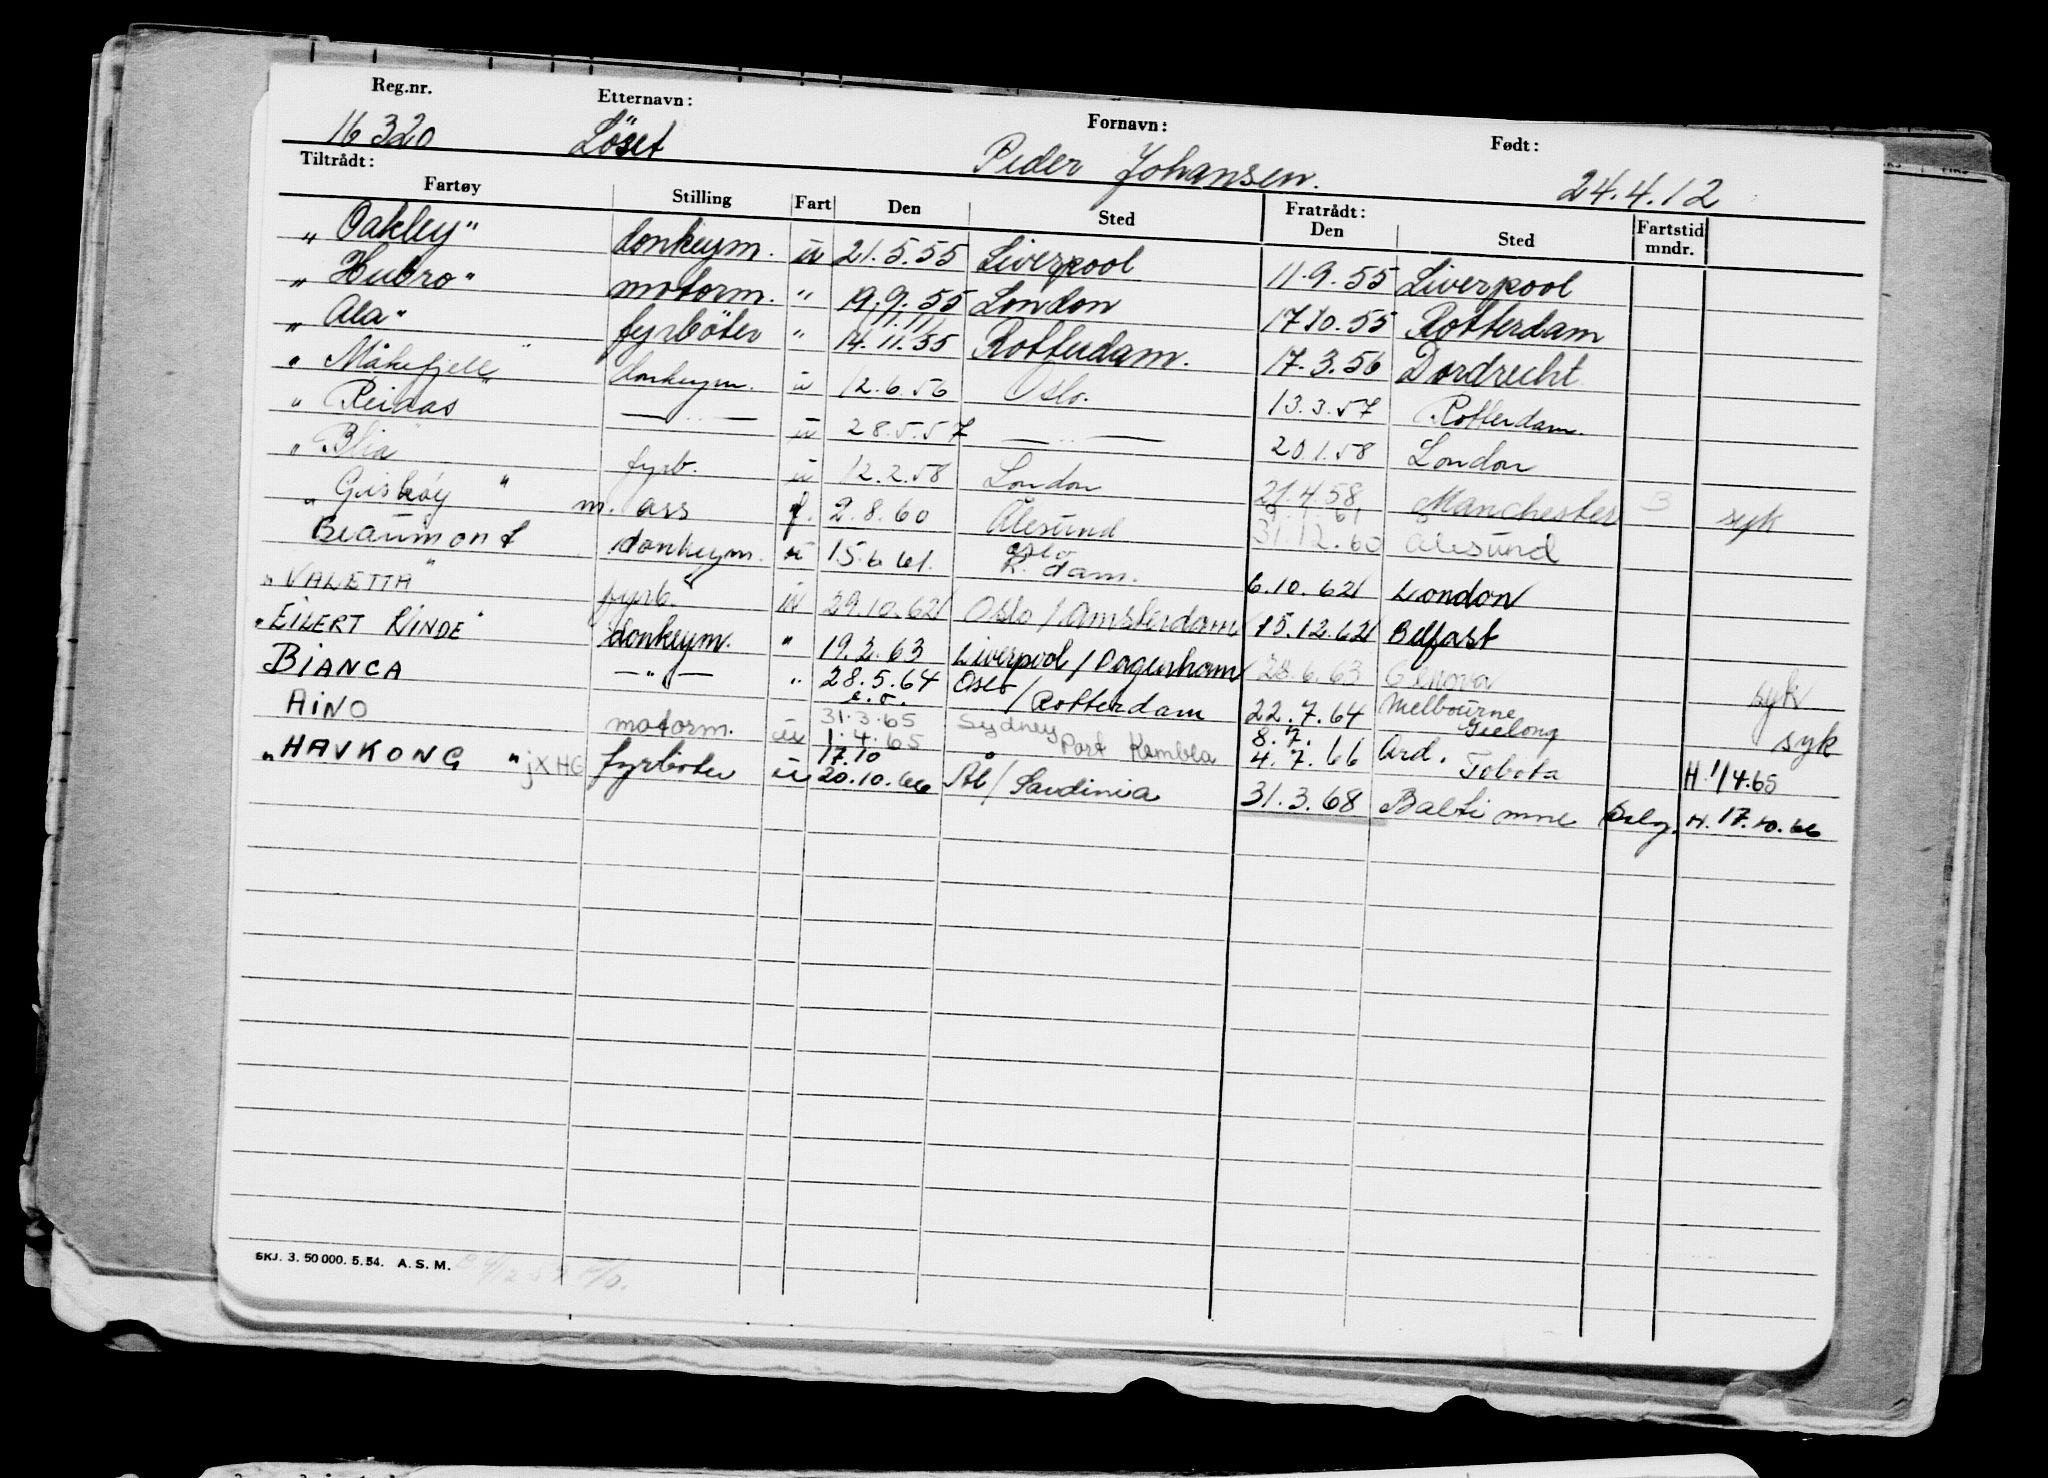 Reg.nr. Etternavn: Fornavn: Født:
16320 Löset Peder Johansen. 24.4.12
Tiltrådt: Fratrådt:
Fartøy Stilling Fart Den Sted Den Sted Fartstid mndr.
„Oakley" donkeym. u 21.5.55 Liverpool 11.9.55 Liverpool
„Hubro" motorm. " 19.9.55 London 17.10.55 Rotterdam
„Ala" fyrböter " 14.11.55 Rotterdam. 17.3.56 Dordrecht
„Måkefjell" donkeym. u 12.6.56 Oslo. 13.3.57 Rotterdam.
„Reinas — " — u 28.5.57 — " — 20.1.58 London
„Blia" fyrb. u 12.2.58 London 21.4.58 Manchester 3 syk
„Giskøy" m. ass f. 2.8.60 Ålesund 31.12.60 Ålesund
Beaumont donkeym. u 15.6.61. Oslo R.dam. 6.10.62 London
„VALETTA" fyrb. u 29.10.62 Oslo / Amsterdam 15.12.62 Belfast
„EILERT RINDE" donkeym. " 19.2.63 Liverpool / Dagenham 28.6.63 Genova syk
BIANCA — " — " 28.5.64 Oslo / Rotterdam 22.7.64 Melbourne Geelong syk
AINO motorm. u 31.3.65 1.4.65 Sydney Port Kembla 8.7. 4.7.66 Ard. Tobata H 1/4.65
„HAVKONG" jXHG fyrböter u 17.10 20.10.66 Ål / Sardinia 31.3.68 Baltimore H. 17.10.66
SKJ. 3. 50 000. 5. 54. A. S. M.